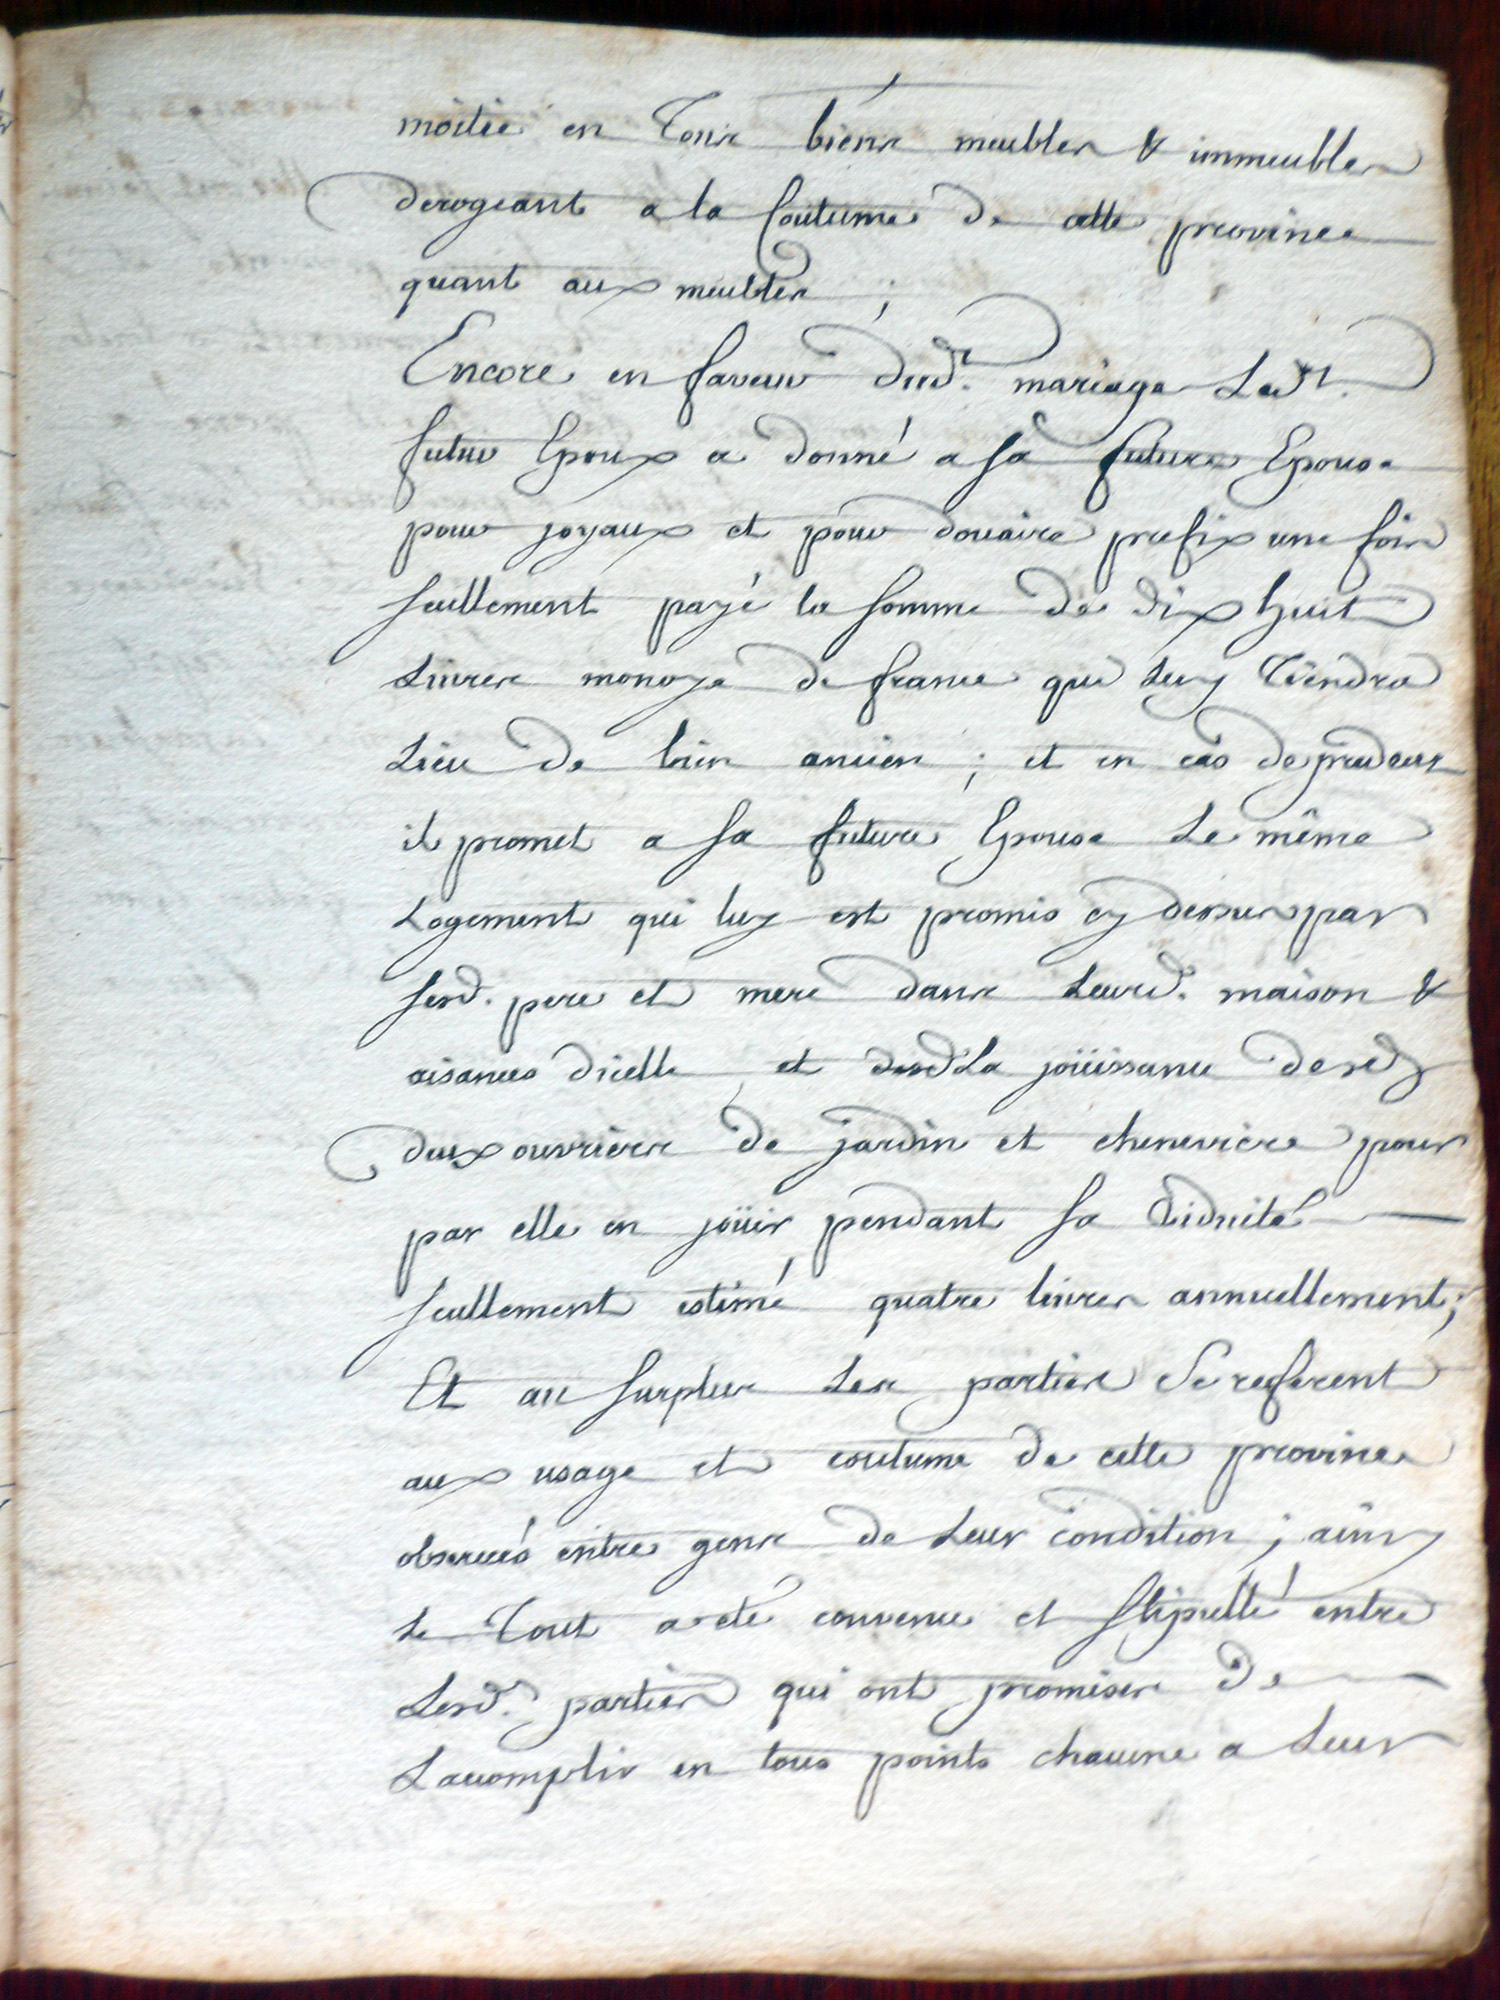 moitié en Tous biens meubles & immeubles
derogeant a la Coutume de cette province
quant aux meubles ;
Encore en faveur dud.t mariage Led.t
futur Epoux a donné a sa future Epouse
pour joyaux et pour douaire prefix une fois
seullement payé la somme de dix huit
Livres monoye de france que luy Tiendra
Lieu de bien ancien ; et en cas de predeces
il promet a sa future Epouse Le même
Logement qui luy est promis cy dessus par
sesd. pere et mere dans Leurd. maison &
aisances d'icelle, et desd La joüissance desd
deux ouvrieres de jardin et cheneviere pour
par elle en joüir pendant sa viduité
seullement estimé quatre livres annuellement ;
Et au surplus Les parties Se referent
aux usage et coutume de cette province
observés entre gens de Leur condition ; ainsy
Le Tout a eté convenu et stipullé entre
Lesd. parties qui ont promises de
L'accomplir en tous points chacune a Leur